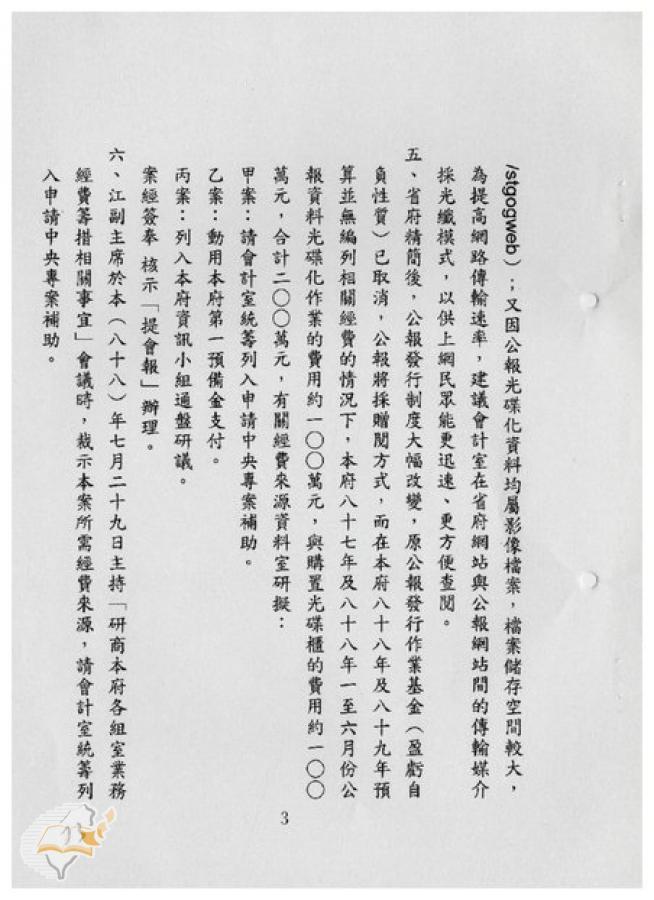 /stgogweb）；又因公報光碟化資料均屬影像檔案，檔案儲存空間較大，
為提高網路傳輸速率，建議會計室在省府網站與公報網站間的傳輸媒介
採光纖模式，以供上網民眾能更迅速、更方便查閱。
五、省府精簡後，公報發行制度大幅改變，原公報發行作業基金（盈虧自
負性質）已取消，公報將採贈閱方式，而在本府八十八年及八十九年預
算並無編列相關經費的情況下，本府八十七年及八十八年一至六月份公
報資料光碟化作業的費用約一〇〇萬元，與購置光碟櫃的費用約一〇〇
萬元，合計二〇〇萬元，有關經費來源資料室研擬：
甲案：請會計室統籌列入申請中央專案補助。
乙案：動用本府第一預備金支付。
丙案：列入本府資訊小組通盤研議。
案經簽奉 核示「提會報」辦理。
六、江副主席於本（八十八）年七月二十九日主持「研商本府各組室業務
經費籌措相關事宜」會議時，裁示本案所需經費來源，請會計室統籌列
入申請中央專案補助。
3